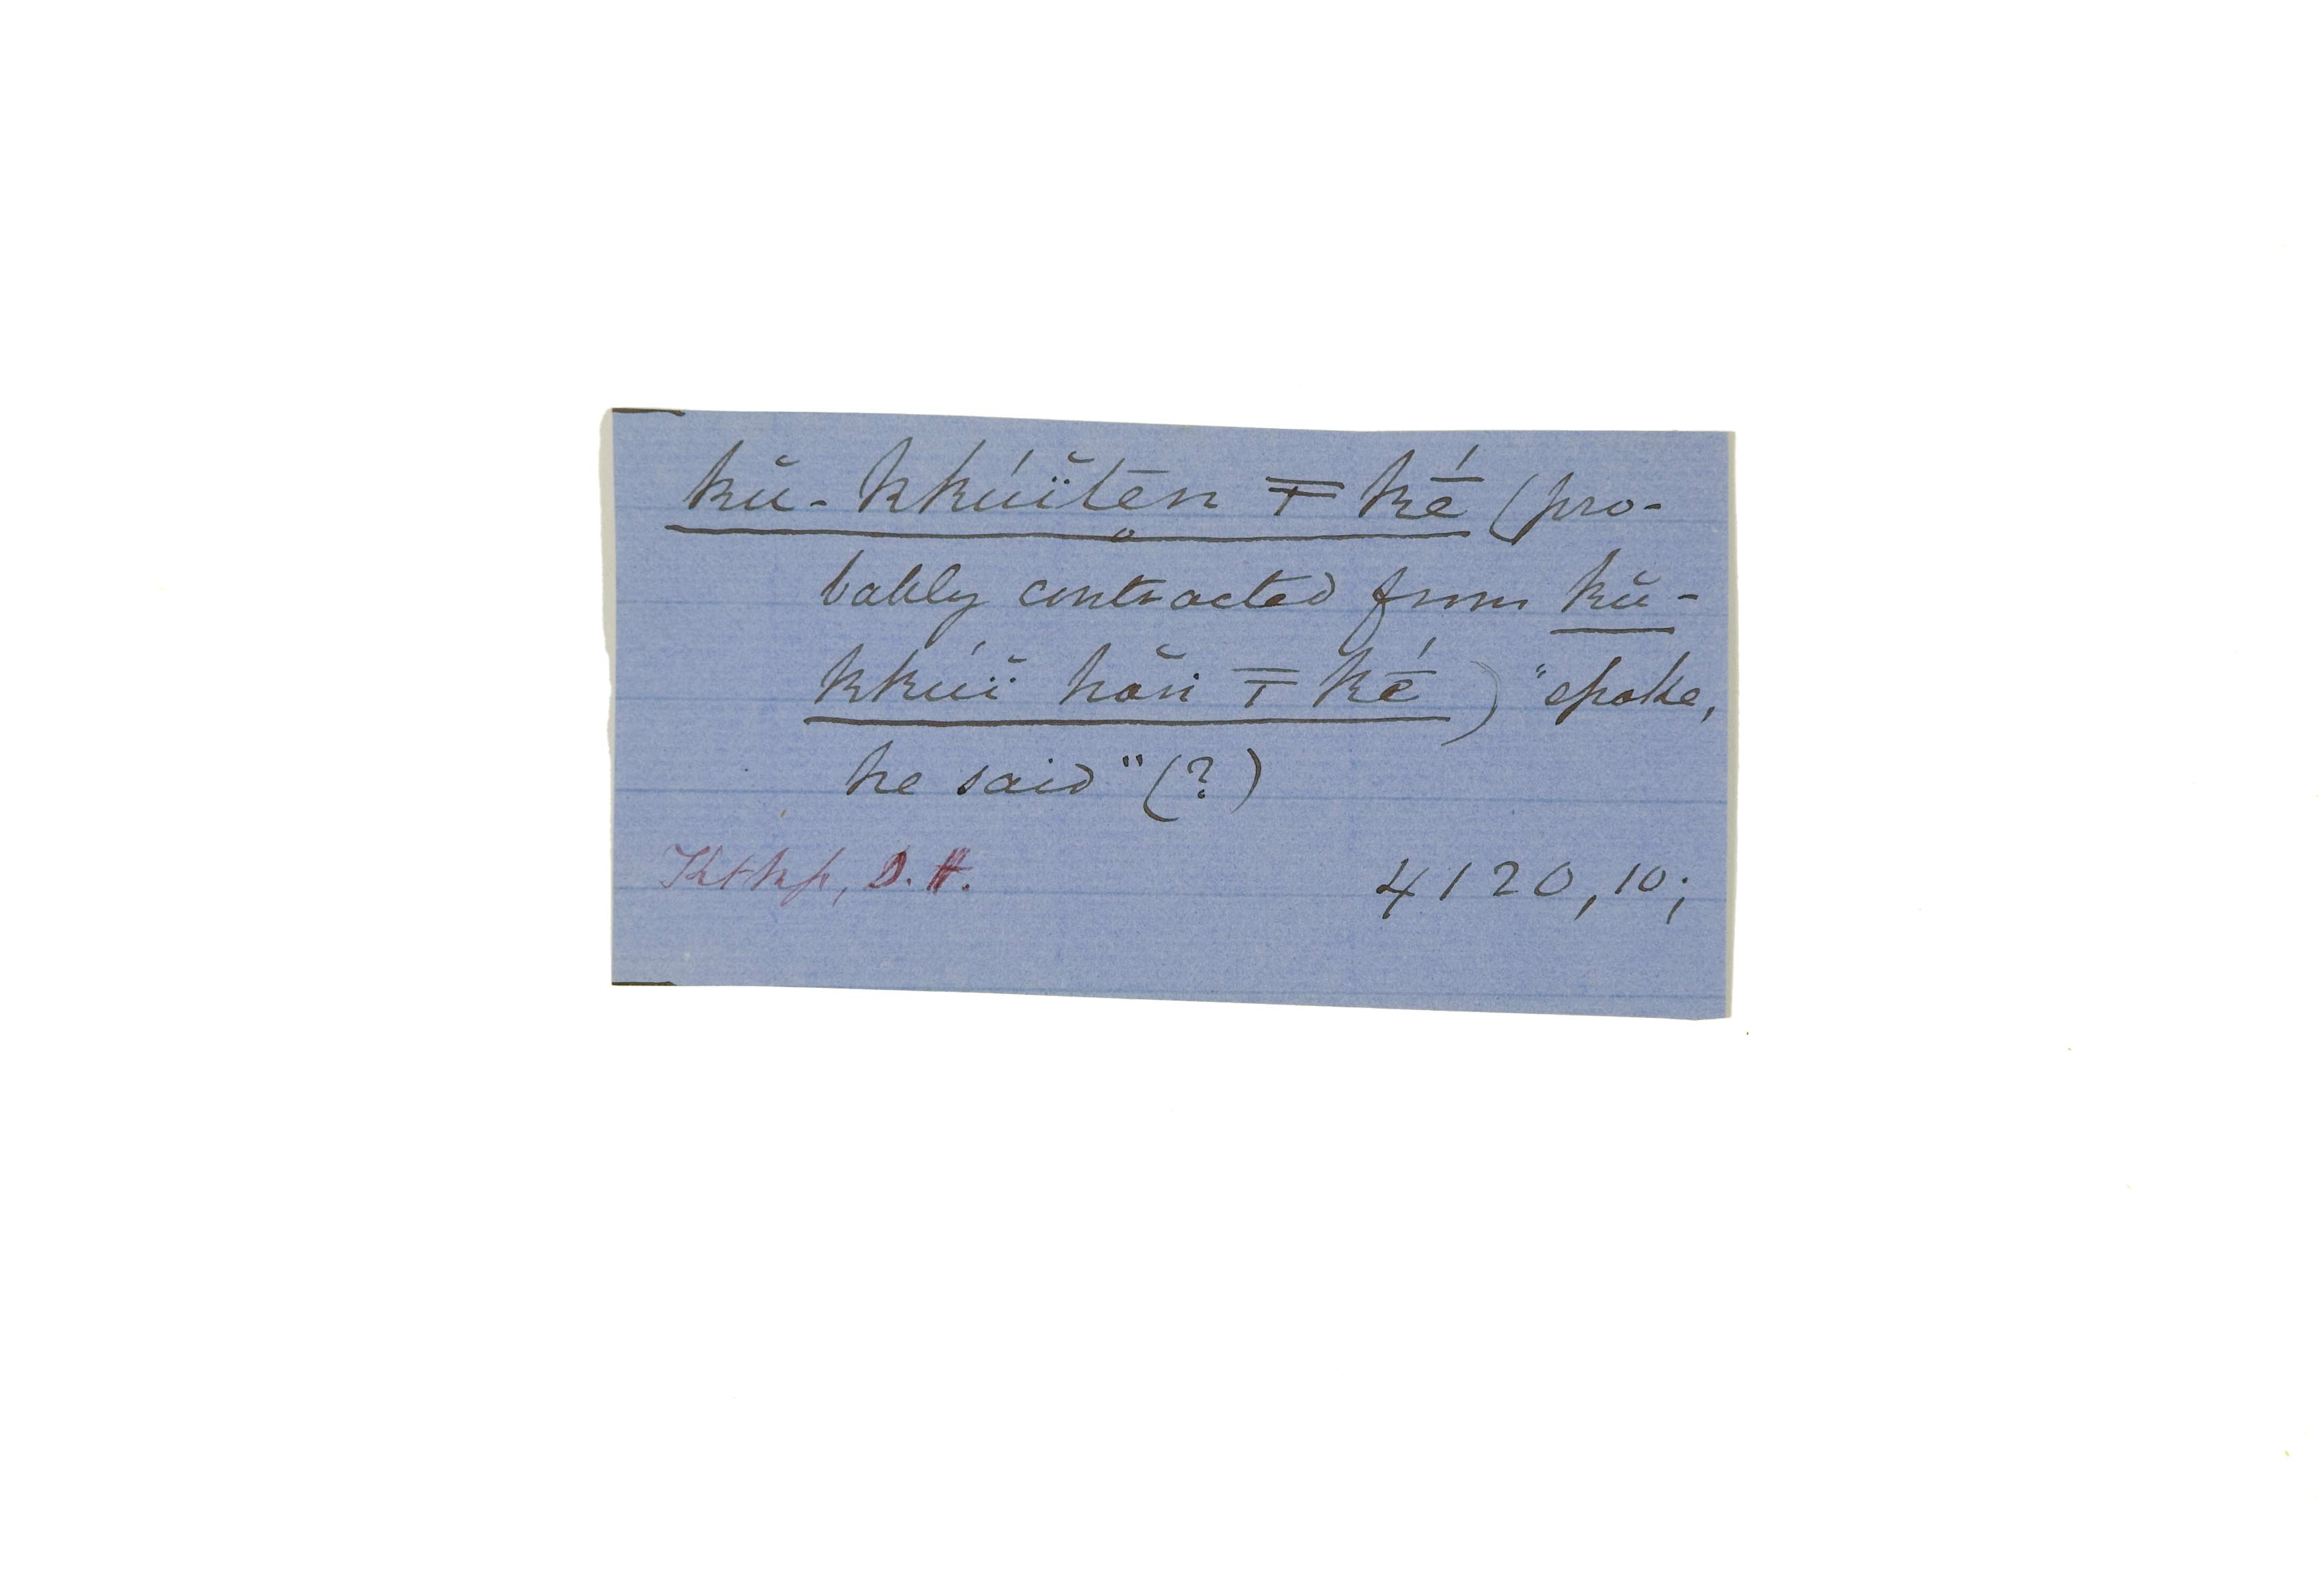 kŭ-kkúïtē̥n ₸ ké̄ (pro-
bably contracted from kŭ-
kkúï hăn ₸ ké̄) "spoke,
he said" (?)
D. H. 4120, 10;